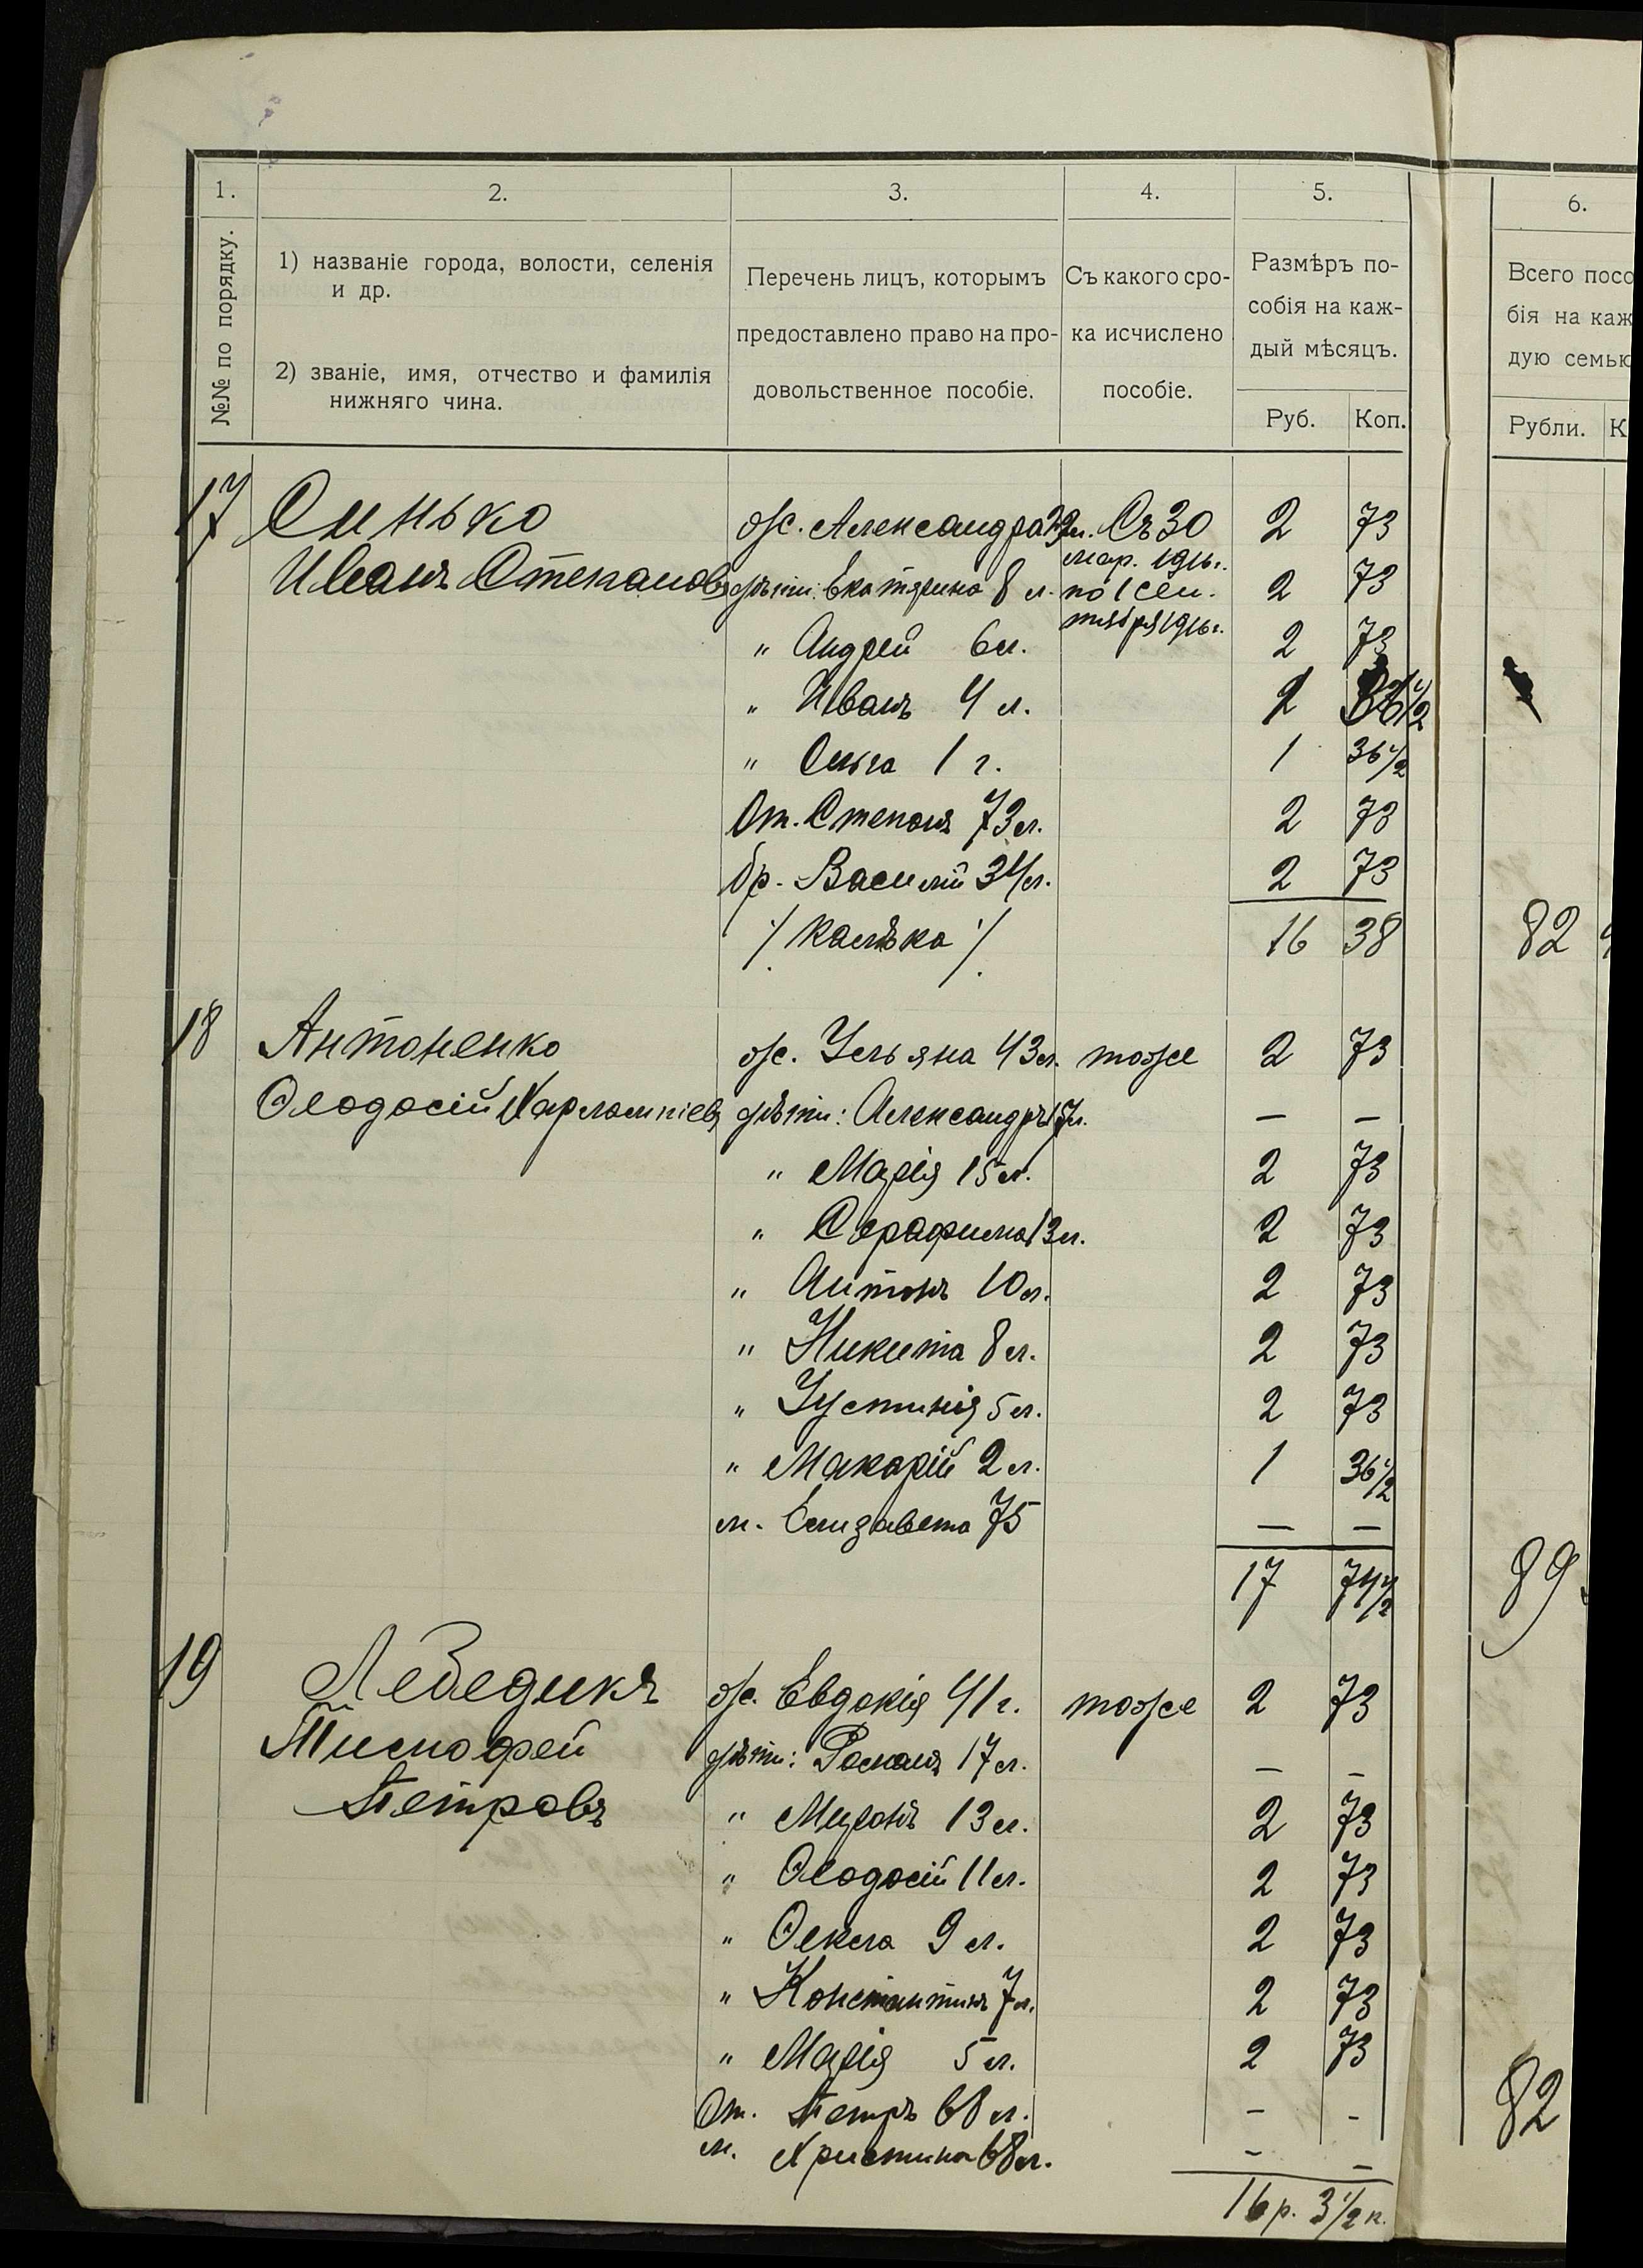 1. 2. 3. 4. 5. 6.
№№ по порядку.
1) названіе города, волости, селенія
и др.
2) званіе, имя, отчество и фамилія
нижняго чина.
Перечень лицъ, которымъ
предоставлено право на про-
довольственное пособіе.
Съ какого сро-
ка исчислено
пособіе.
Размѣръ по-
собія на каж-
дый мѣсяцъ.
Руб. Коп.
Всего посо
бія на каж
дую семью
Рубли. К
17 Синько ж. Александра л. Съ 30 2 73
мар. 1916 г.
Иванъ Степановъ дѣти: Екатерина 8 л. по 1 сен- 2 73
тября 1916 г.
" Андрей 6 л. 2 73
" Иванъ 4 л.
" Ольга 1 г. 1 36 1/2
От. Степанъ 73 л. 2 73
бр. Василій 34 л. 2 73
/ калѣка / 16 38 82
18 Антоненко ж. Ульяна 43 л. тоже 2 73
Ѳеодосій Харлампіевъ дѣти: Александръ 17 л. — —
" Марія 15 л. 2 73
" Серафима 13 л. 2 73
" Антонъ 10 л. 2 73
" Никита 8 л. 2 73
" Іустинія 5 л. 2 73
" Макарій 2 л. 1 36 1/2
м. Елизавета 75 — —
17 74 1/2 89
19 Лебедикъ ж. Евдокія 41 г. тоже 2 73
Тимофей дѣти: Романъ 17 л. — —
Петровъ " Миронъ 13 л. 2 73
" Ѳеодосій 11 л. 2 73
" Ѳекла 9 л. 2 73
" Константинъ 7 л. 2 73
" Марія 5 л. 2 73
От. Петръ 68 л. - - 82
м. Христина 68 л. - —
16 р. 3 1/2 к.